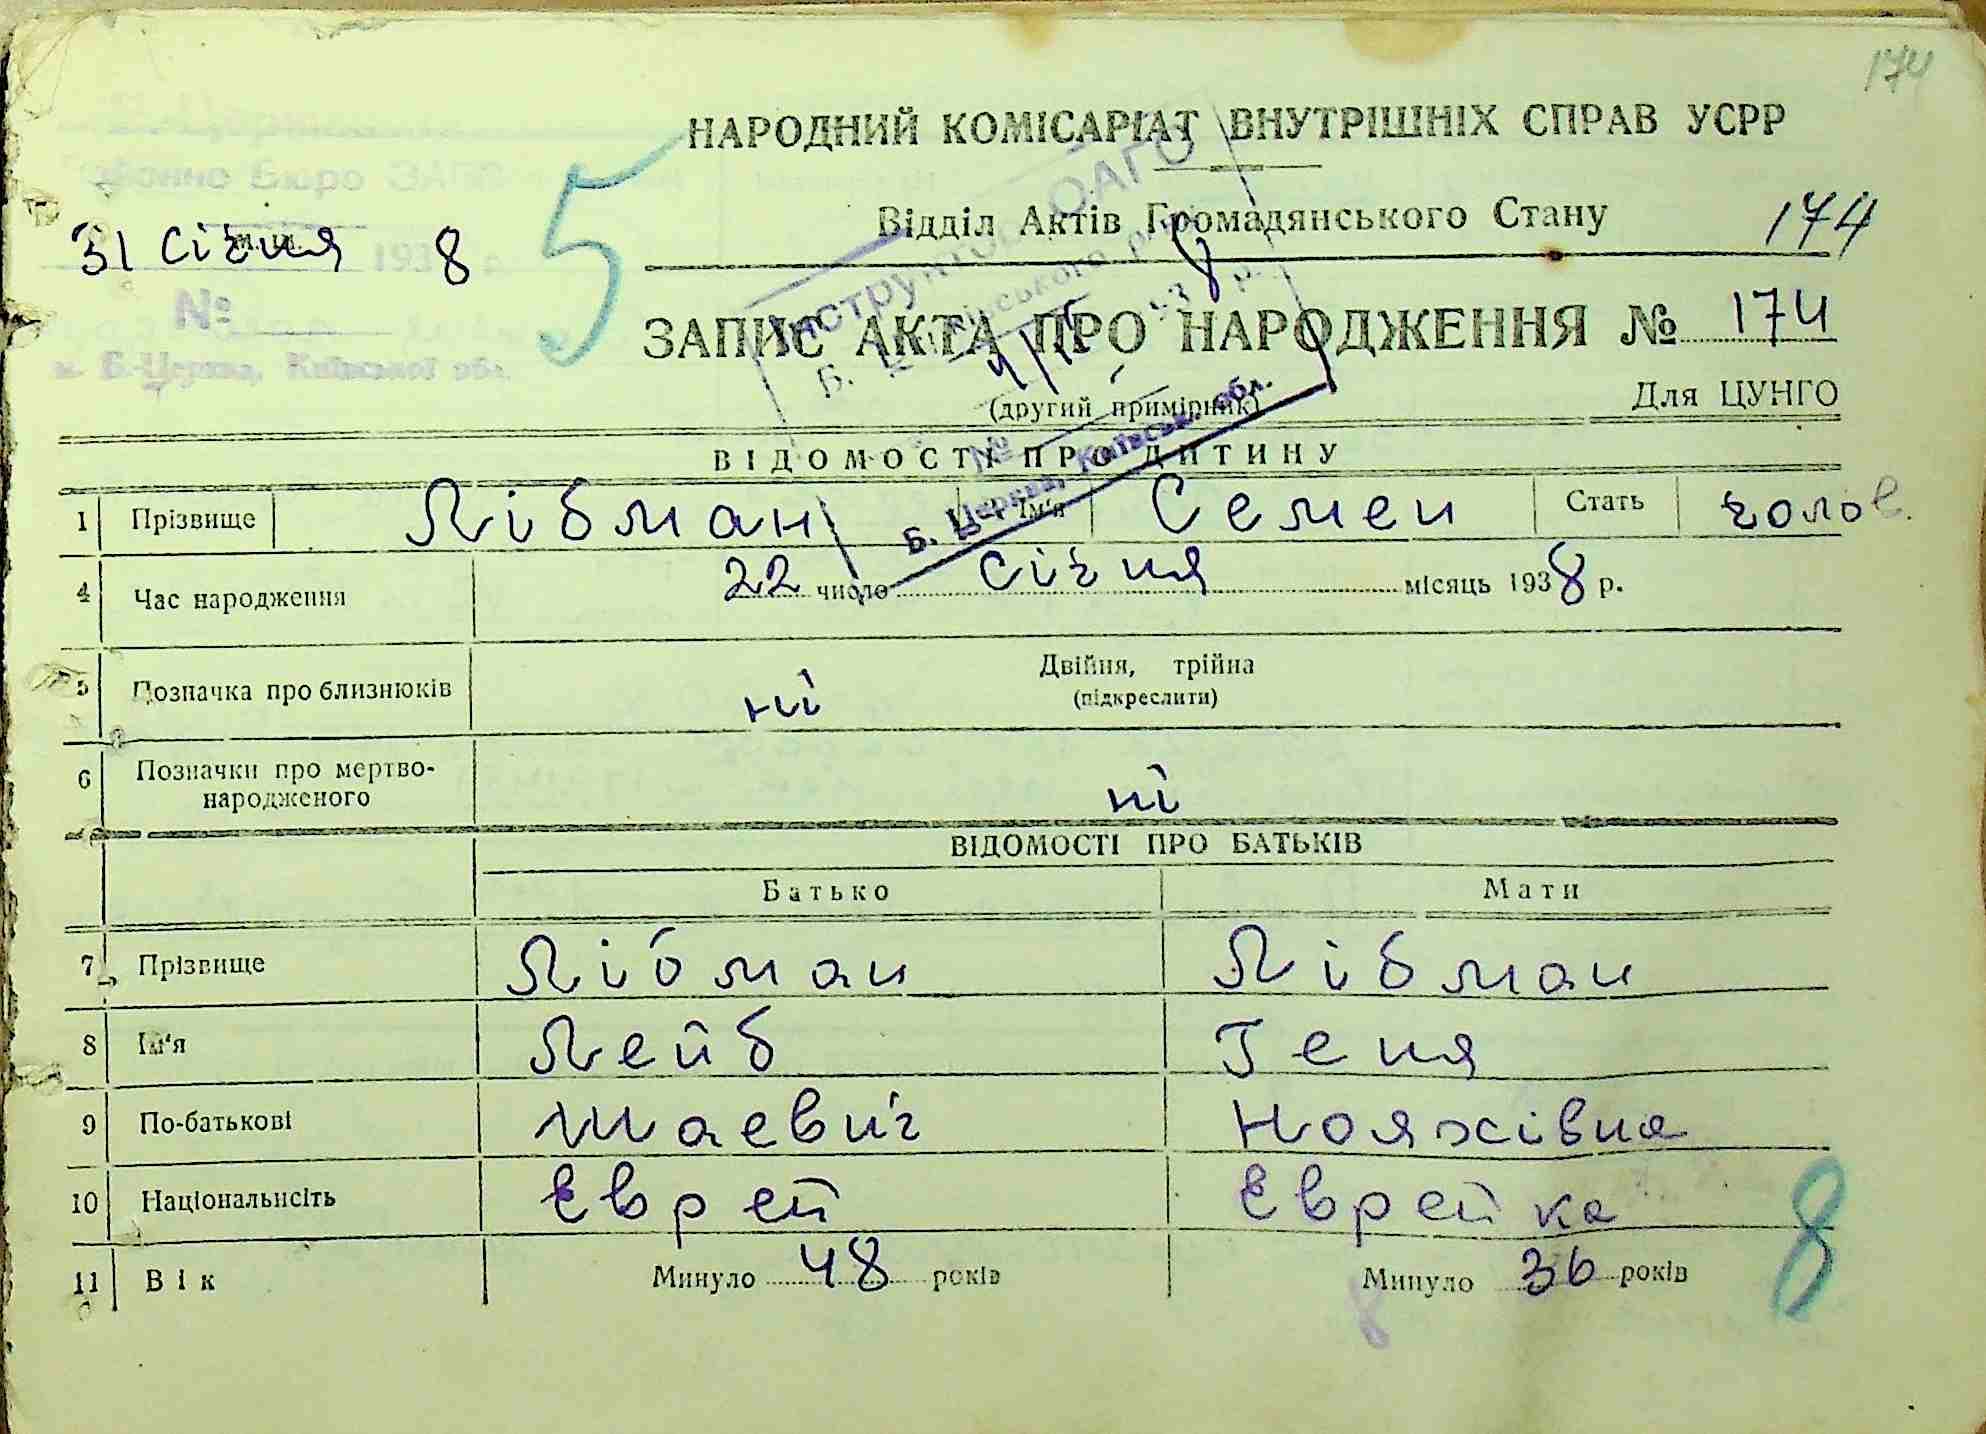 174
НАРОДНИЙ КОМІСАРІАТ ВНУТРІШНІХ СПРАВ УСРР
Районне Бюро ЗАГС
Відділ Актів Громадянського Стану 174
31 січня 1938 р.
5
№
м. Б.-Церква, Київської обл.
ЗАПИС АКТА ПРО НАРОДЖЕННЯ № 174
(другий примірник)
Для ЦУНГО
Інструктор ОАГС
Б. Церківського
193 8 р.
№
Б. Церква, Київськ. обл.
ВІДОМОСТІ ПРО ДИТИНУ
1 Прізвище Лібман Ім'я Семен Стать чолов.
4 Час народження 22 число січня місяць 1938 р.
5 Позначка про близнюків ні Двійня, трійна
(підкреслити)
6 Позначки про мертво-
народженого ні
ВІДОМОСТІ ПРО БАТЬКІВ
Батько Мати
7 Прізвище Лібман Лібман
8 Ім'я Лейб Геня
9 По-батькові Шаевич Нояхівна
10 Національність Еврей Еврейка
11 Вік Минуло 48 років Минуло 36 років
8
8